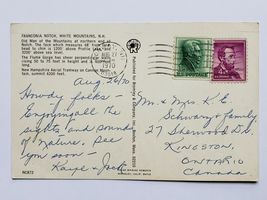 FRANCONIA NOTCH, WHITE MOUNTAINS, N.H.
Old Man of the Mountains at northern end of
Notch. The face which measures 48' from forehead
to chin is 1200' above Profile Lake, and
3200' above sea level.
The Flume Gorge has sheer perpendicular walls
rising 50 to 75 feet in height and is
New Hampshire Aerial Tramway on Cannon Mountain,
summit 4200 feet.
AUG 27
1970
U.S. POSTAGE
4¢
Aug 26/70
Howdy folks -
Enjoying all the
sights and sounds
of nature. See
you soon -
Kaye & Jack
Mr & Mrs. K. E.
Schwary & family
27 Sherwood Dr.
KINGSTON
ONTARIO
Canada